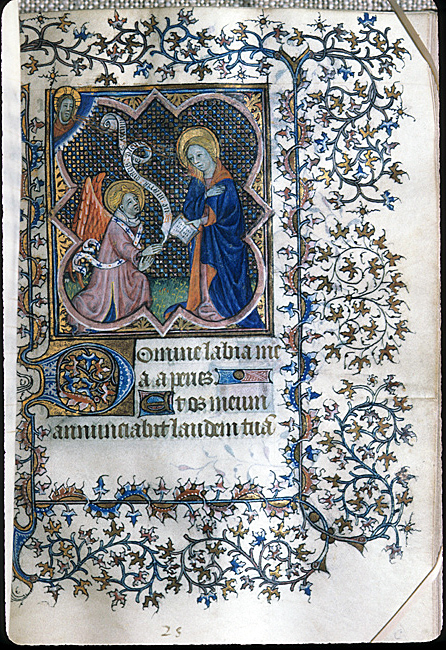 Domine labia me
a aperies
Et os meum
annunciabit laudem tuā
25